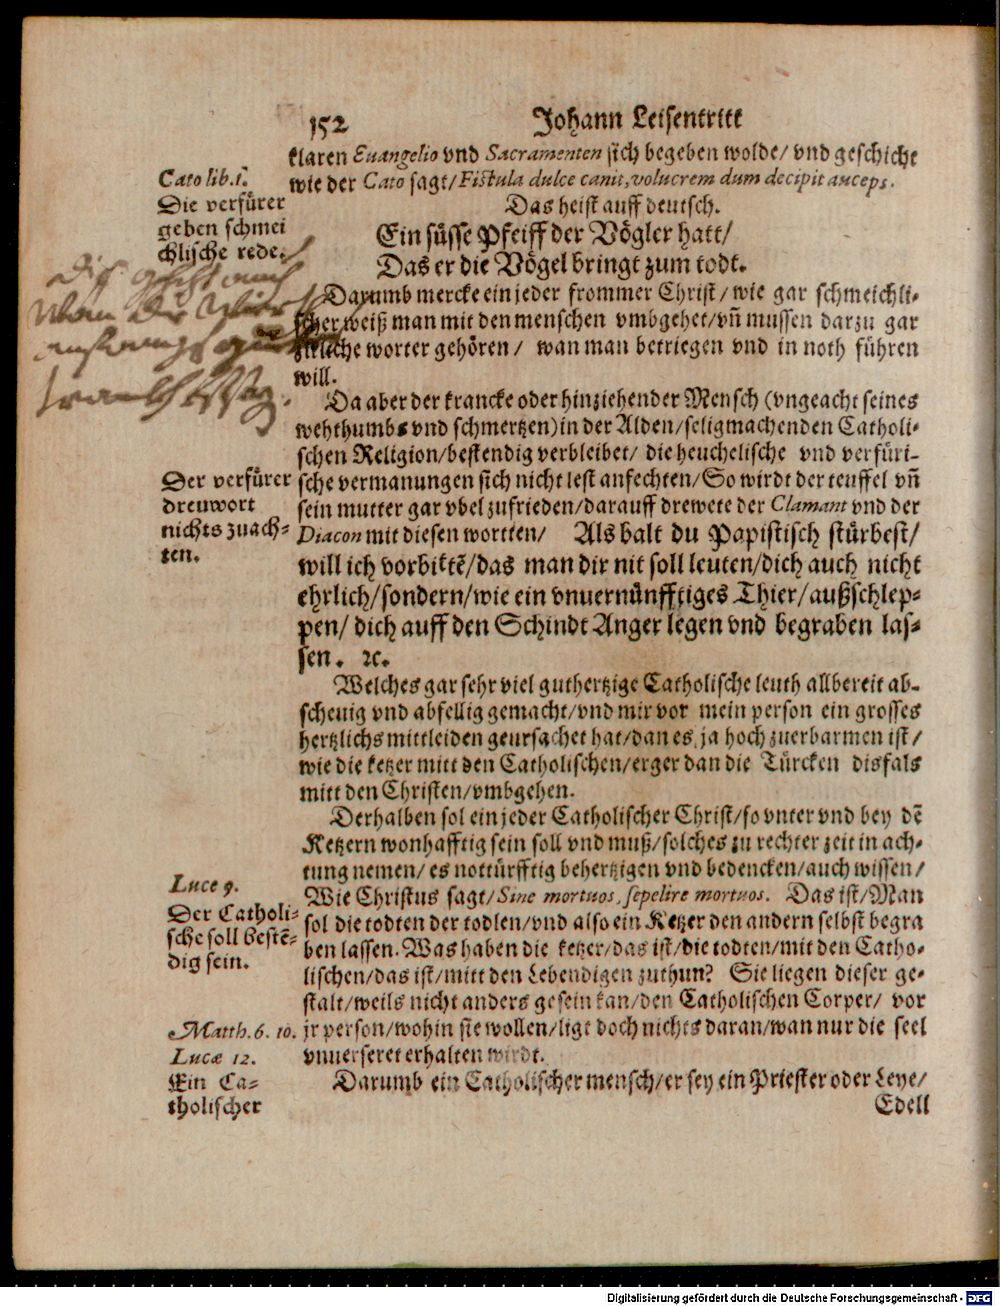 152 Johann Leisentritt
klaren Euangelio vnd Sacramenten sich begeben wolde/ vnd geschicht
Cato lib.1.
wie der Cato sagt/ Fistula dulce canit, volucrem dum decipit auceps.
Die verfürer
geben schmei
chlische rede.
Das heist auff deutsch.
Ein süsse Pfeiff der Vögler hatt/
Das er die Vögel bringt zum todt.
Darumb mercke ein jeder frommer Christ/ wie gar schmeichli-
scher weiß man mit den menschen vmbgehet/ vñ mussen darzu gar
worter gehören/ wan man betriegen vnd in noth führen
will.
Da aber der krancke oder hinziehender Mensch (vngeacht seines
wehthumbs vnd schmertzen) in der Alden/ seligmachenden Catholi-
schen Religion/ bestendig verbleibet/ die heuchelische vnd verfüri-
Der verfürer
dreuwort
nichts zuach-
ten.
sche vermanungen sich nicht lest anfechten/ So wirdt der teuffel vñ
sein mutter gar vbel zufrieden/ darauff drewete der Clamant vnd der
Diacon mit diesen wortten/ Als balt du Papistisch stürbest/
will ich vorbittẽ/ das man dir nit soll leuten/ dich auch nicht
ehrlich/ sondern/ wie ein vnuernünfftiges Thier/ außschlep-
pen/ dich auff den Schindt Anger legen vnd begraben las-
sen. ꝛc.
Welches gar sehr viel guthertzige Catholische leuth allbereit ab-
scheuig vnd abfellig gemacht/ vnd mir vor mein person ein grosses
hertzlichs mittleiden geursachet hat/ dan es ja hoch zuerbarmen ist/
wie die ketzer mitt den Catholischen/ erger dan die Türcken disfals
mitt den Christen/ vmbgehen.
Derhalben sol ein jeder Catholischer Christ/ so vnter vnd bey dẽ
Ketzern wonhafftig sein soll vnd muß/ solches zu rechter zeit in ach-
tung nemen/ es nottürfftig behertzigen vnd bedencken/ auch wissen/
Luce 9.
Der Catholi-
sche soll bestẽ-
dig sein.
Wie Christus sagt/ Sine mortuos, sepelire mortuos. Das ist/ Man
sol die todten der todten/ vnd also ein Ketzer den andern selbst begra
ben lassen. Was haben die ketzer/ das ist/ die todten/ mit den Catho-
lischen/ das ist/ mitt den Lebendigen zuthun? Sie liegen dieser ge-
stalt/ weils nicht anders gesein kan/ den Catholischen Corper/ vor
Matth. 6. 10.
Lucæ 12.
Ein Ca-
tholischer
jr person/ wohin sie wollen/ ligt doch nichts daran/ wan nur die seel
vnuerseret erhalten wirdt.
Darumb ein Catholischer mensch/ er sey ein Priester oder Leye/
Edell
Digitalisierung gefördert durch die Deutsche Forschungsgemeinschaft - DFG